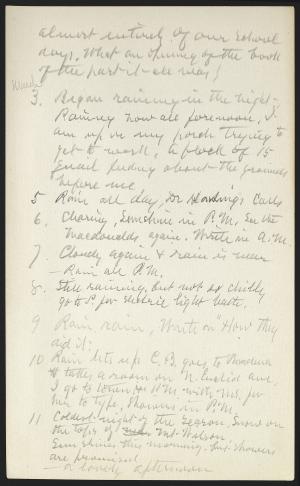 almost entirely of our school
days. What an opening of the book
of the past it all was!
March
3. Began raining in the night.
Raining now all forenoon. I
am up in my porch trying to
get to work. A flock of 15
quail feeding about the grounds
before me.
5 Rain all day, Dr Harding's calls
6. Clearing, Sunshine in P.M. See the
Macdonalds again. Write in A.M.
7. Cloudy again & rain is near
— Rain all P.M.
8. Still raining, but not so chilly
go to P. for electric light bath.
9 Rain, rain, Write on "How they
did it."
10 Rain lets up C.B. goes to Pasadena
& takes a room on N. Euclid ave.
I go to town in P.M. with ms. for
to type, Showers in P.M.
11 Coldest night of the season, Snow on
the top of Mt. Wilson
Sun shines this morning but showers
are promised
— a lovely afternoon